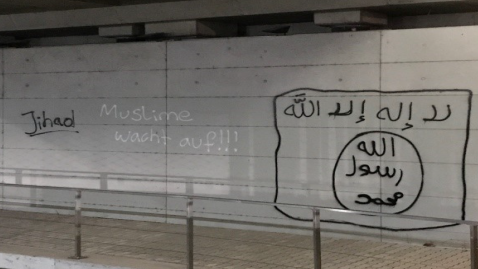 Jihad
Muslime
wacht auf!!!
لا إله إلا الله
الله
رسول
محمد